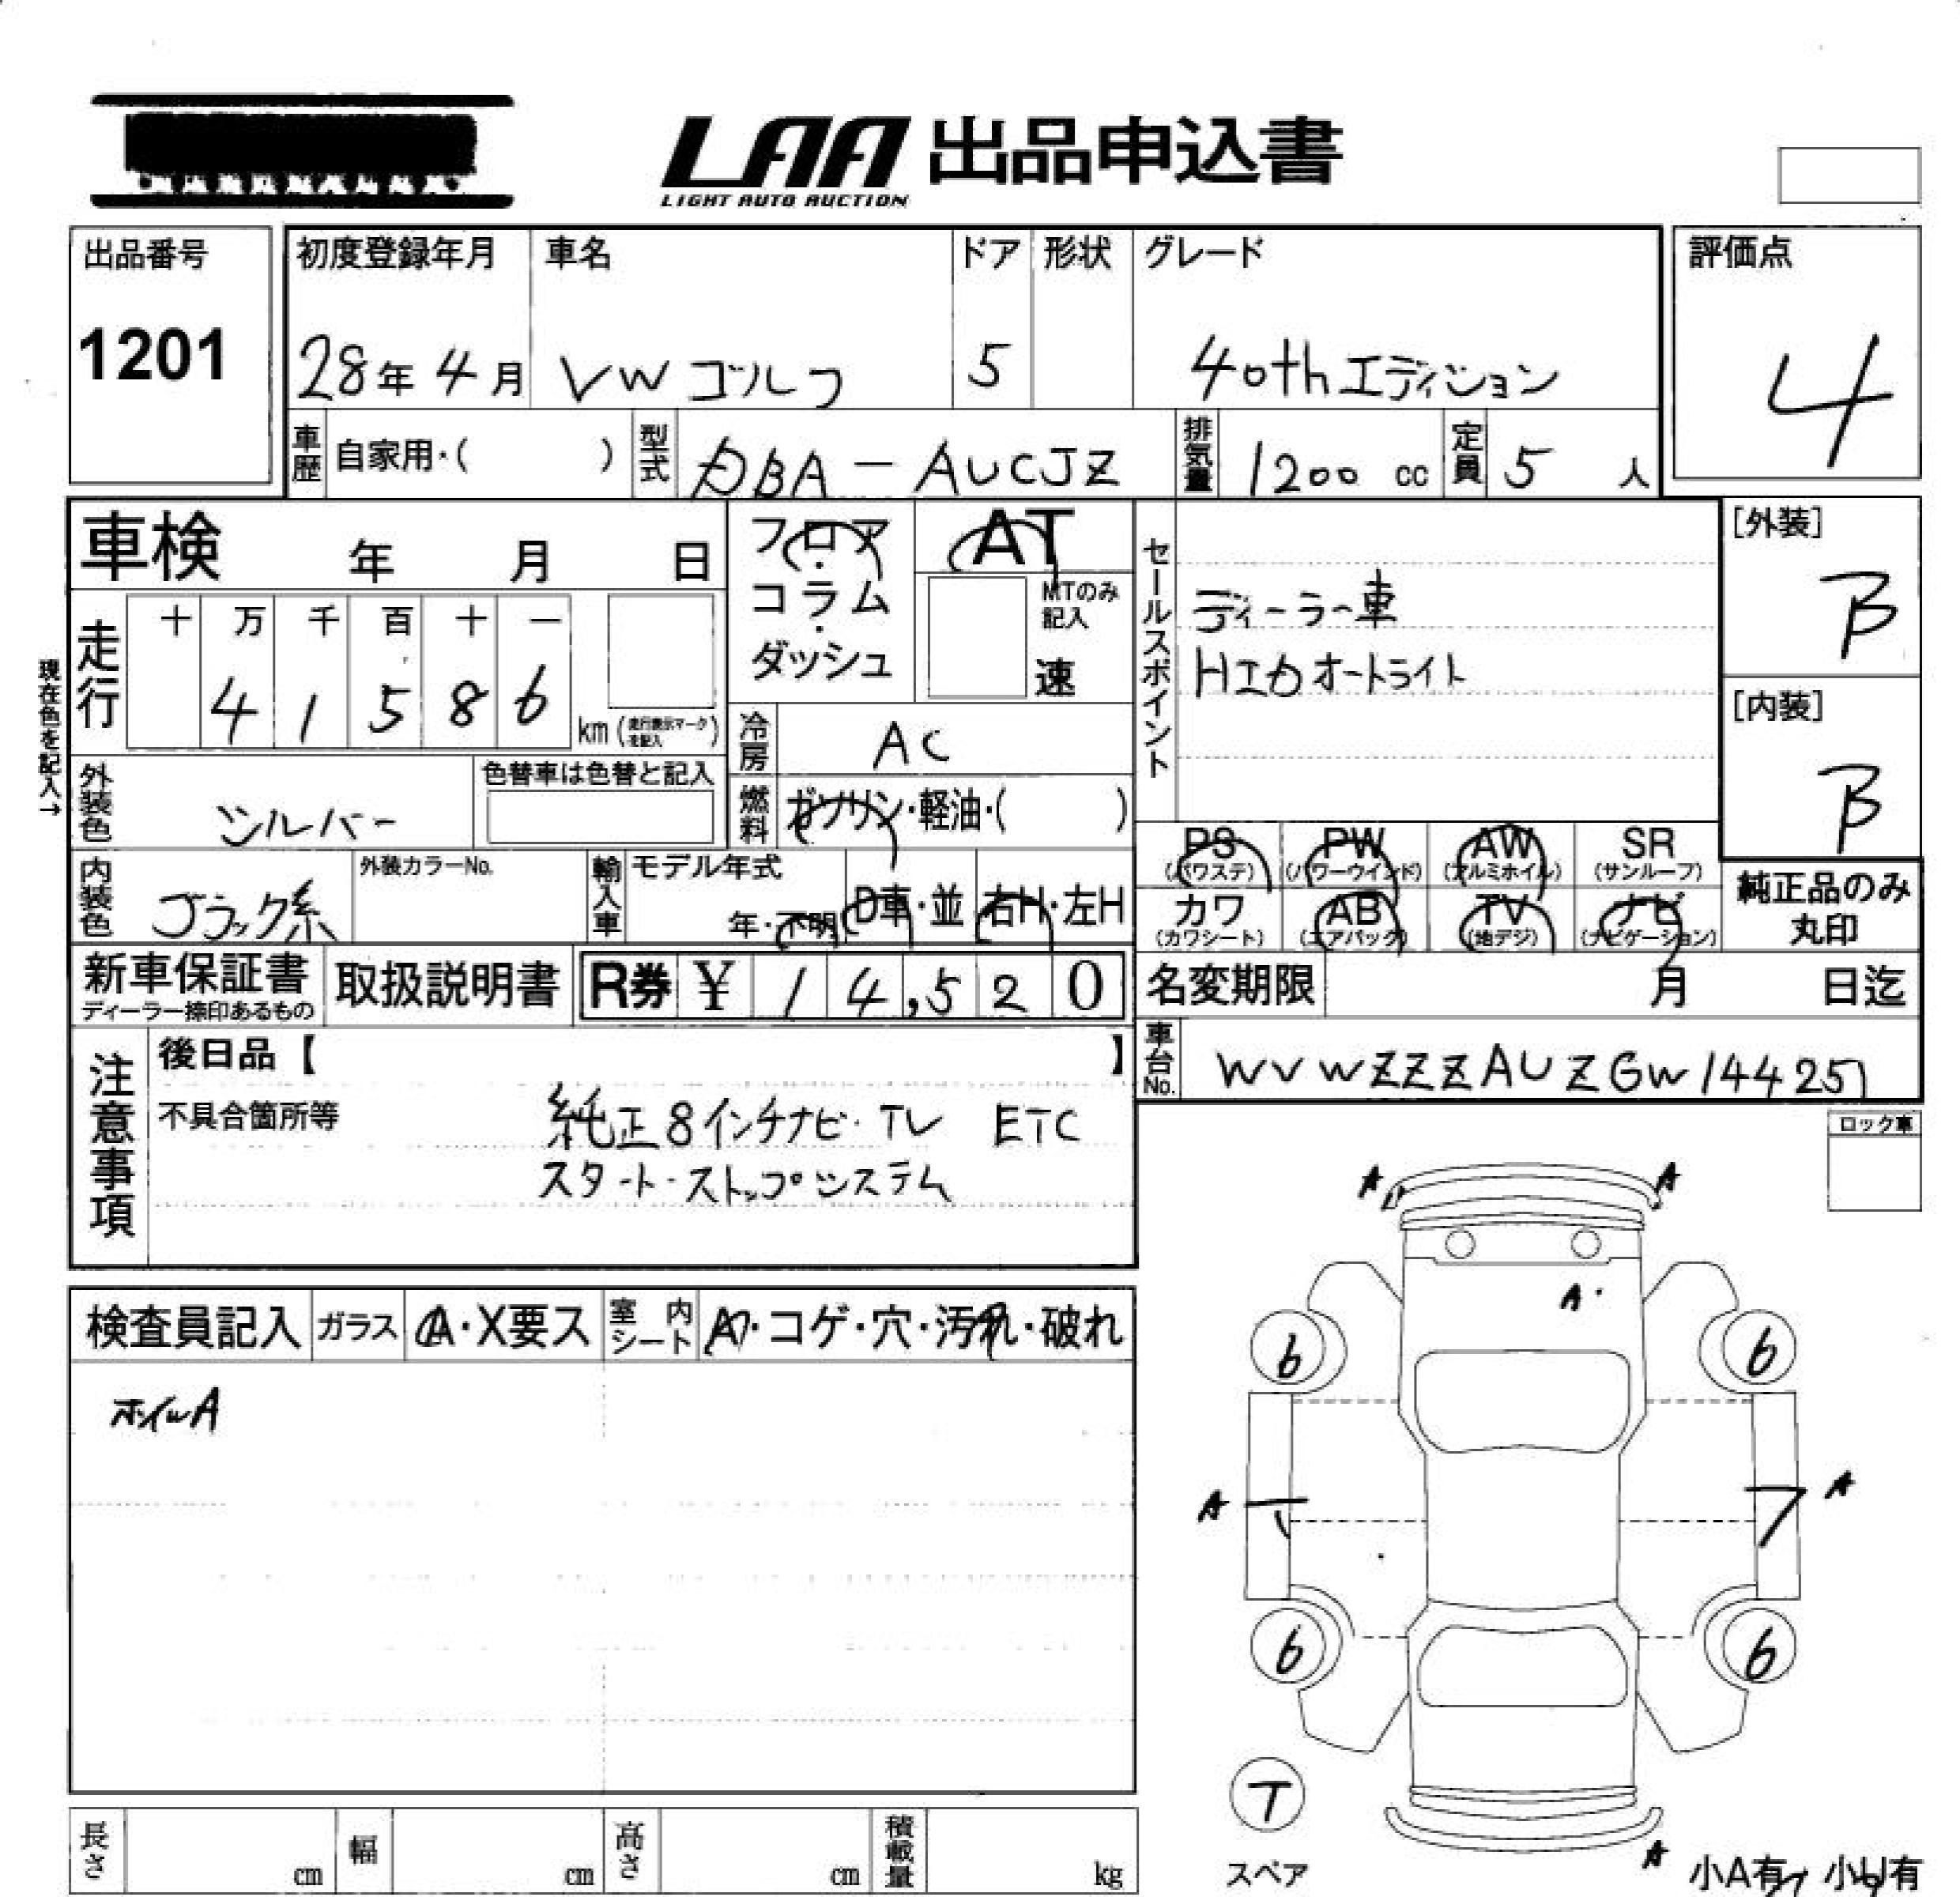 LAA 出品申込書
LIGHT AUTO AUCTION
出品番号
1201
初度登録年月 車名 ドア 形状 グレード
28年 4月 VW ゴルフ 5 40thエディション
評価点
4
車歴 自家用・( ) 型式 DBA-AUCJZ 排気量 1200 cc 定員 5 人
車検 年 月 日
フロア・コラム・ダッシュ
AT
MTのみ記入
速
セールスポイント
ディーラー車
HID オートライト
[外装]
B
[内装]
B
現在色を記入→
走行 十 万 千 百 十 一
4 1 5 8 6 km (走行表示マークを記入)
冷房 AC
外装色 シルバー 色替車は色替と記入
燃料 ガソリン・軽油・( )
内装色 ブラック系 外装カラーNo.
輸入車 モデル年式 年・不明 D車・並 右H・左H
PS (パワステ) PW (パワーウインド) AW (アルミホイル) SR (サンルーフ)
カワ (カワシート) AB (エアバック) TV (地デジ) ナビ (ナビゲーション)
純正品のみ丸印
新車保証書 ディーラー捺印あるもの 取扱説明書 R券 ¥ 1 4,5 2 0
名変期限 月 日迄
車台No. WVWZZZAUZGW144251
注意事項
後日品【 】
不具合箇所等
純正8インチナビ・TV ETC
スタート・ストップシステム
ロック車
検査員記入 ガラス A・X要ス 室内シート A・コゲ・穴・汚れ・破れ
ホイルA
A A
A
6 6
A A
6 6
T
スペア
A
小A有 小U有
長さ cm 幅 cm 高さ cm 積載量 kg